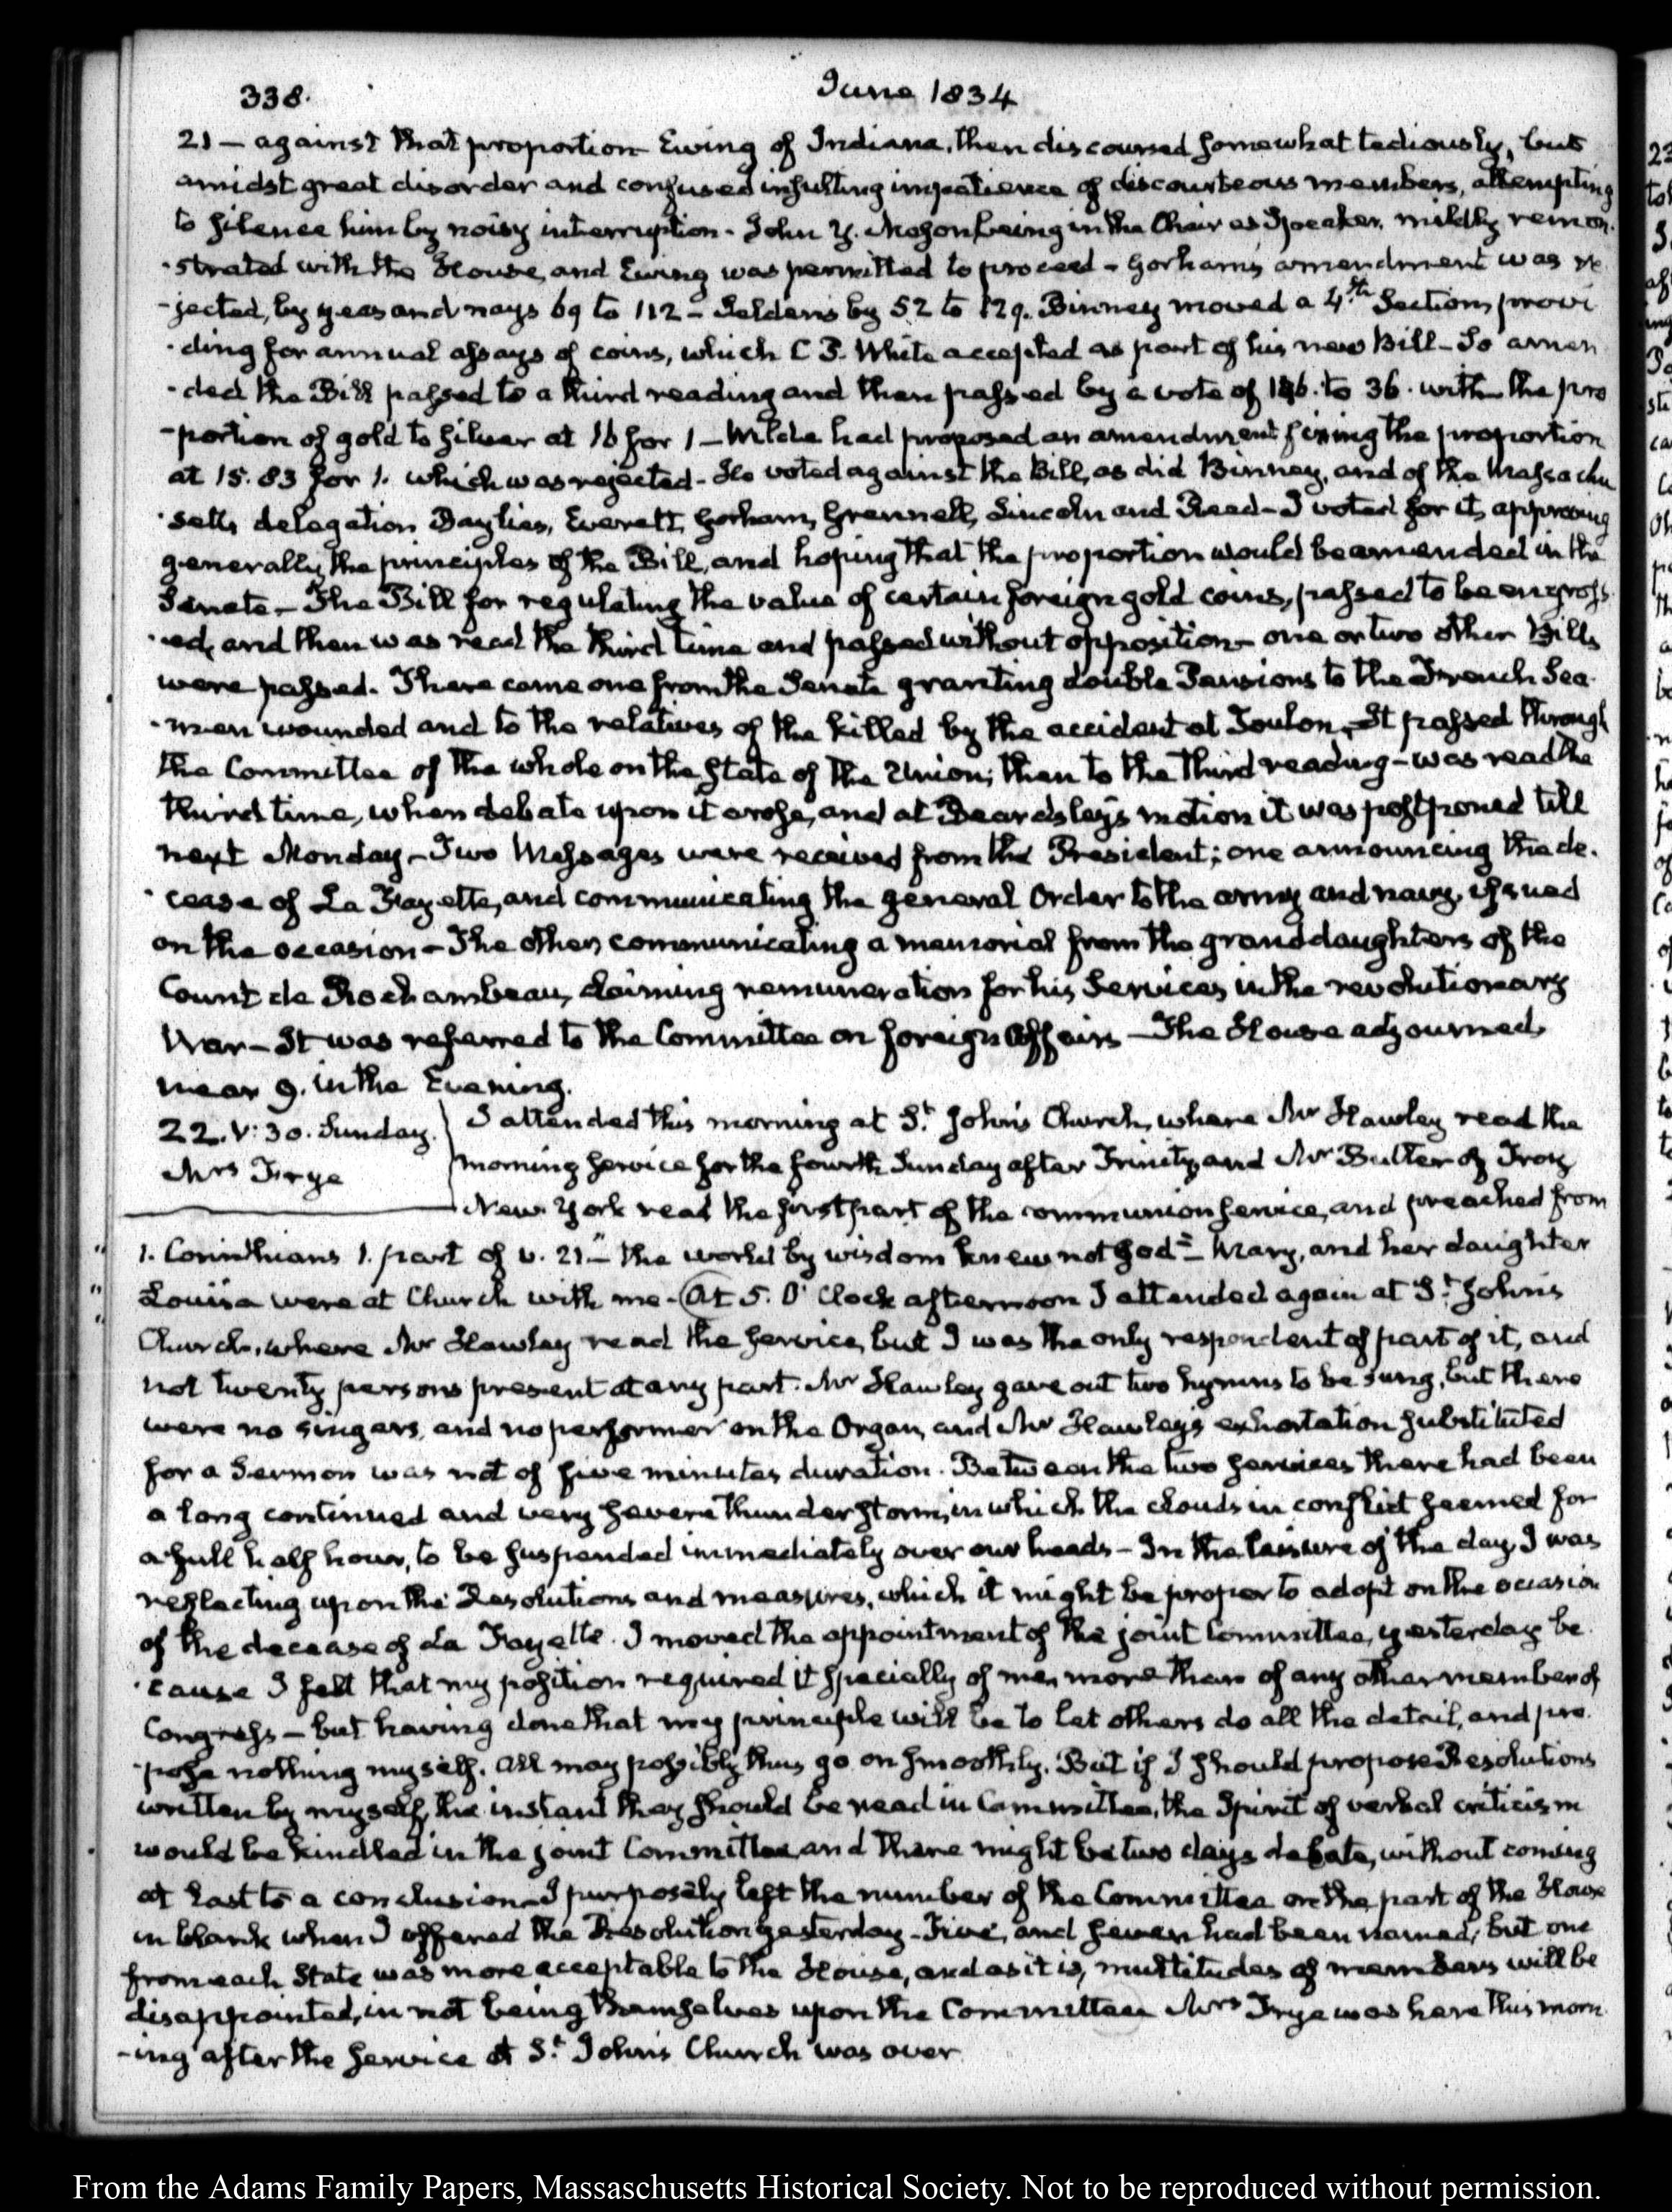 338.
June 1834
21 — against that proportion Ewing of Indiana, then discoursed somewhat tediously, but
amidst great disorder and confused insulting impatience of discourteous members, attempting
to silence him by noisy interruption - John Y. Mason being in the Chair as Speaker, mildly remon-
-strated with the House, and Ewing was permitted to proceed - Gorham's amendment was re
-jected, by yeas and nays 69 to 112 - Selden's by 52 to 129. Binney moved a 4th Section, provi
-ding for annual assays of coins, which C P. White accepted as part of his new Bill - So amen
-ded the Bill passed to a third reading and then passed by a vote of to 36. with the pro
-portion of gold to silver at 16 for 1 - Wilde had proposed an amendment fixing the proportion
at 15.83 for 1. which was rejected - He voted against the Bill, as did Binney, and of the Massachu
-setts delegation Baylies, Everett, Gorham, Grennell, Lincoln and Reed - I voted for it, approving
generally the principles of the Bill, and hoping that the proportion would be amended in the
Senate - The Bill for regulating the value of certain foreign gold coins, passed to be engross
-ed, and then was read the third time and passed without opposition - one or two other Bills
were passed. There came one from the Senate granting double Pensions to the French Sea-
-men wounded and to the relatives of the killed by the accident at Toulon - It passed through
the Committee of the whole on the State of the Union; then to the third reading - was read the
third time, when debate upon it arose, and at Beardsley's motion it was postponed till
next Monday - Two Messages were received from the President; one announcing the de-
-cease of La Fayette, and communicating the general Order to the army and navy, issued
on the occasion - The other communicating a memorial from the granddaughters of the
Count de Rochambeau, claiming remuneration for his Services in the revolutionary
War - It was referred to the Committee on foreign Affairs - The House adjourned
near 9. in the Evening.
22. V: 30. Sunday.
Mrs Frye
I attended this morning at St. John's Church, where Mr Hawley read the
morning service for the fourth Sunday after Trinity, and Mr Butler of Troy
New York read the first part of the communion service, and preached from
1. Corinthians 1. part of v. 21. "the world by wisdom knew not God" - Mary, and her daughter
Louisa were at Church with me - At 5. O'Clock afternoon I attended again at St. John's
Church, where Mr Hawley read the service, but I was the only respondent of part of it, and
not twenty persons present at any part. Mr Hawley gave out two hymns to be sung, but there
were no singers, and no performer on the Organ, and Mr Hawley's exhortation substituted
for a Sermon was not of five minutes duration. Between the two services there had been
a long continued and very severe thunder storm, in which the clouds in conflict seemed for
a full half hour, to be suspended immediately over our heads - In the leisure of the day, I was
reflecting upon the Resolutions and measures, which it might be proper to adopt on the occasion
of the decease of La Fayette. I moved the appointment of the joint Committee, yesterday be-
-cause I felt that my position required it specially of me, more than of any other member of
Congress - but having done that my principle will be to let others do all the detail, and pro-
-pose nothing myself. All may possibly thus go on smoothly. But if I should propose Resolutions
written by myself, the instant they should be read in Committee, the Spirit of verbal criticism
would be kindled in the joint Committee and there might be two days debate, without coming
at last to a conclusion - I purposely left the number of the Committee on the part of the House
in blank when I offered the Resolution yesterday - Five, and seven had been named; but one
from each State was more acceptable to the House, and as it is, multitudes of members will be
disappointed, in not being themselves upon the Committee Mrs Frye was here this morn
-ing after the service at St. John's Church was over
From the Adams Family Papers, Massachusetts Historical Society. Not to be reproduced without permission.